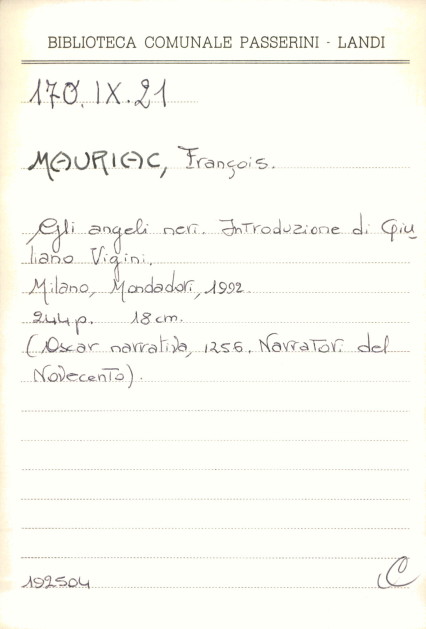 BIBLIOTECA COMUNALE PASSERINI - LANDI
170.IX.21
MAURIAC, François.
Gli angeli neri. Introduzione di Giu
liano Vigini.
Milano, Mondadori, 1992.
244p. 18cm.
(Oscar narrativa, 1256. Narratori del
Novecento).
192504
C